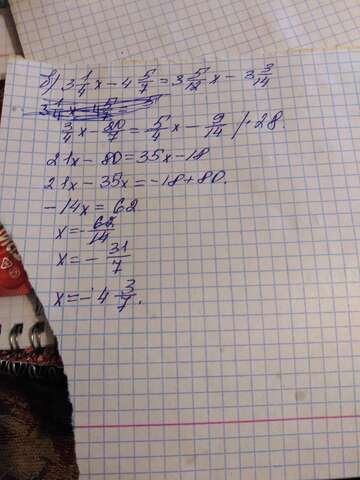 в) 3 1/4 x - 4 5/7 = 3 5/12 x - 3 3/14
3/4 x - 20/7 = 5/4 x - 9/14 | · 28
21x - 80 = 35x - 18
21x - 35x = -18 + 80.
-14x = 62
x = - 62/14
x = - 31/7
x = - 4 3/7.